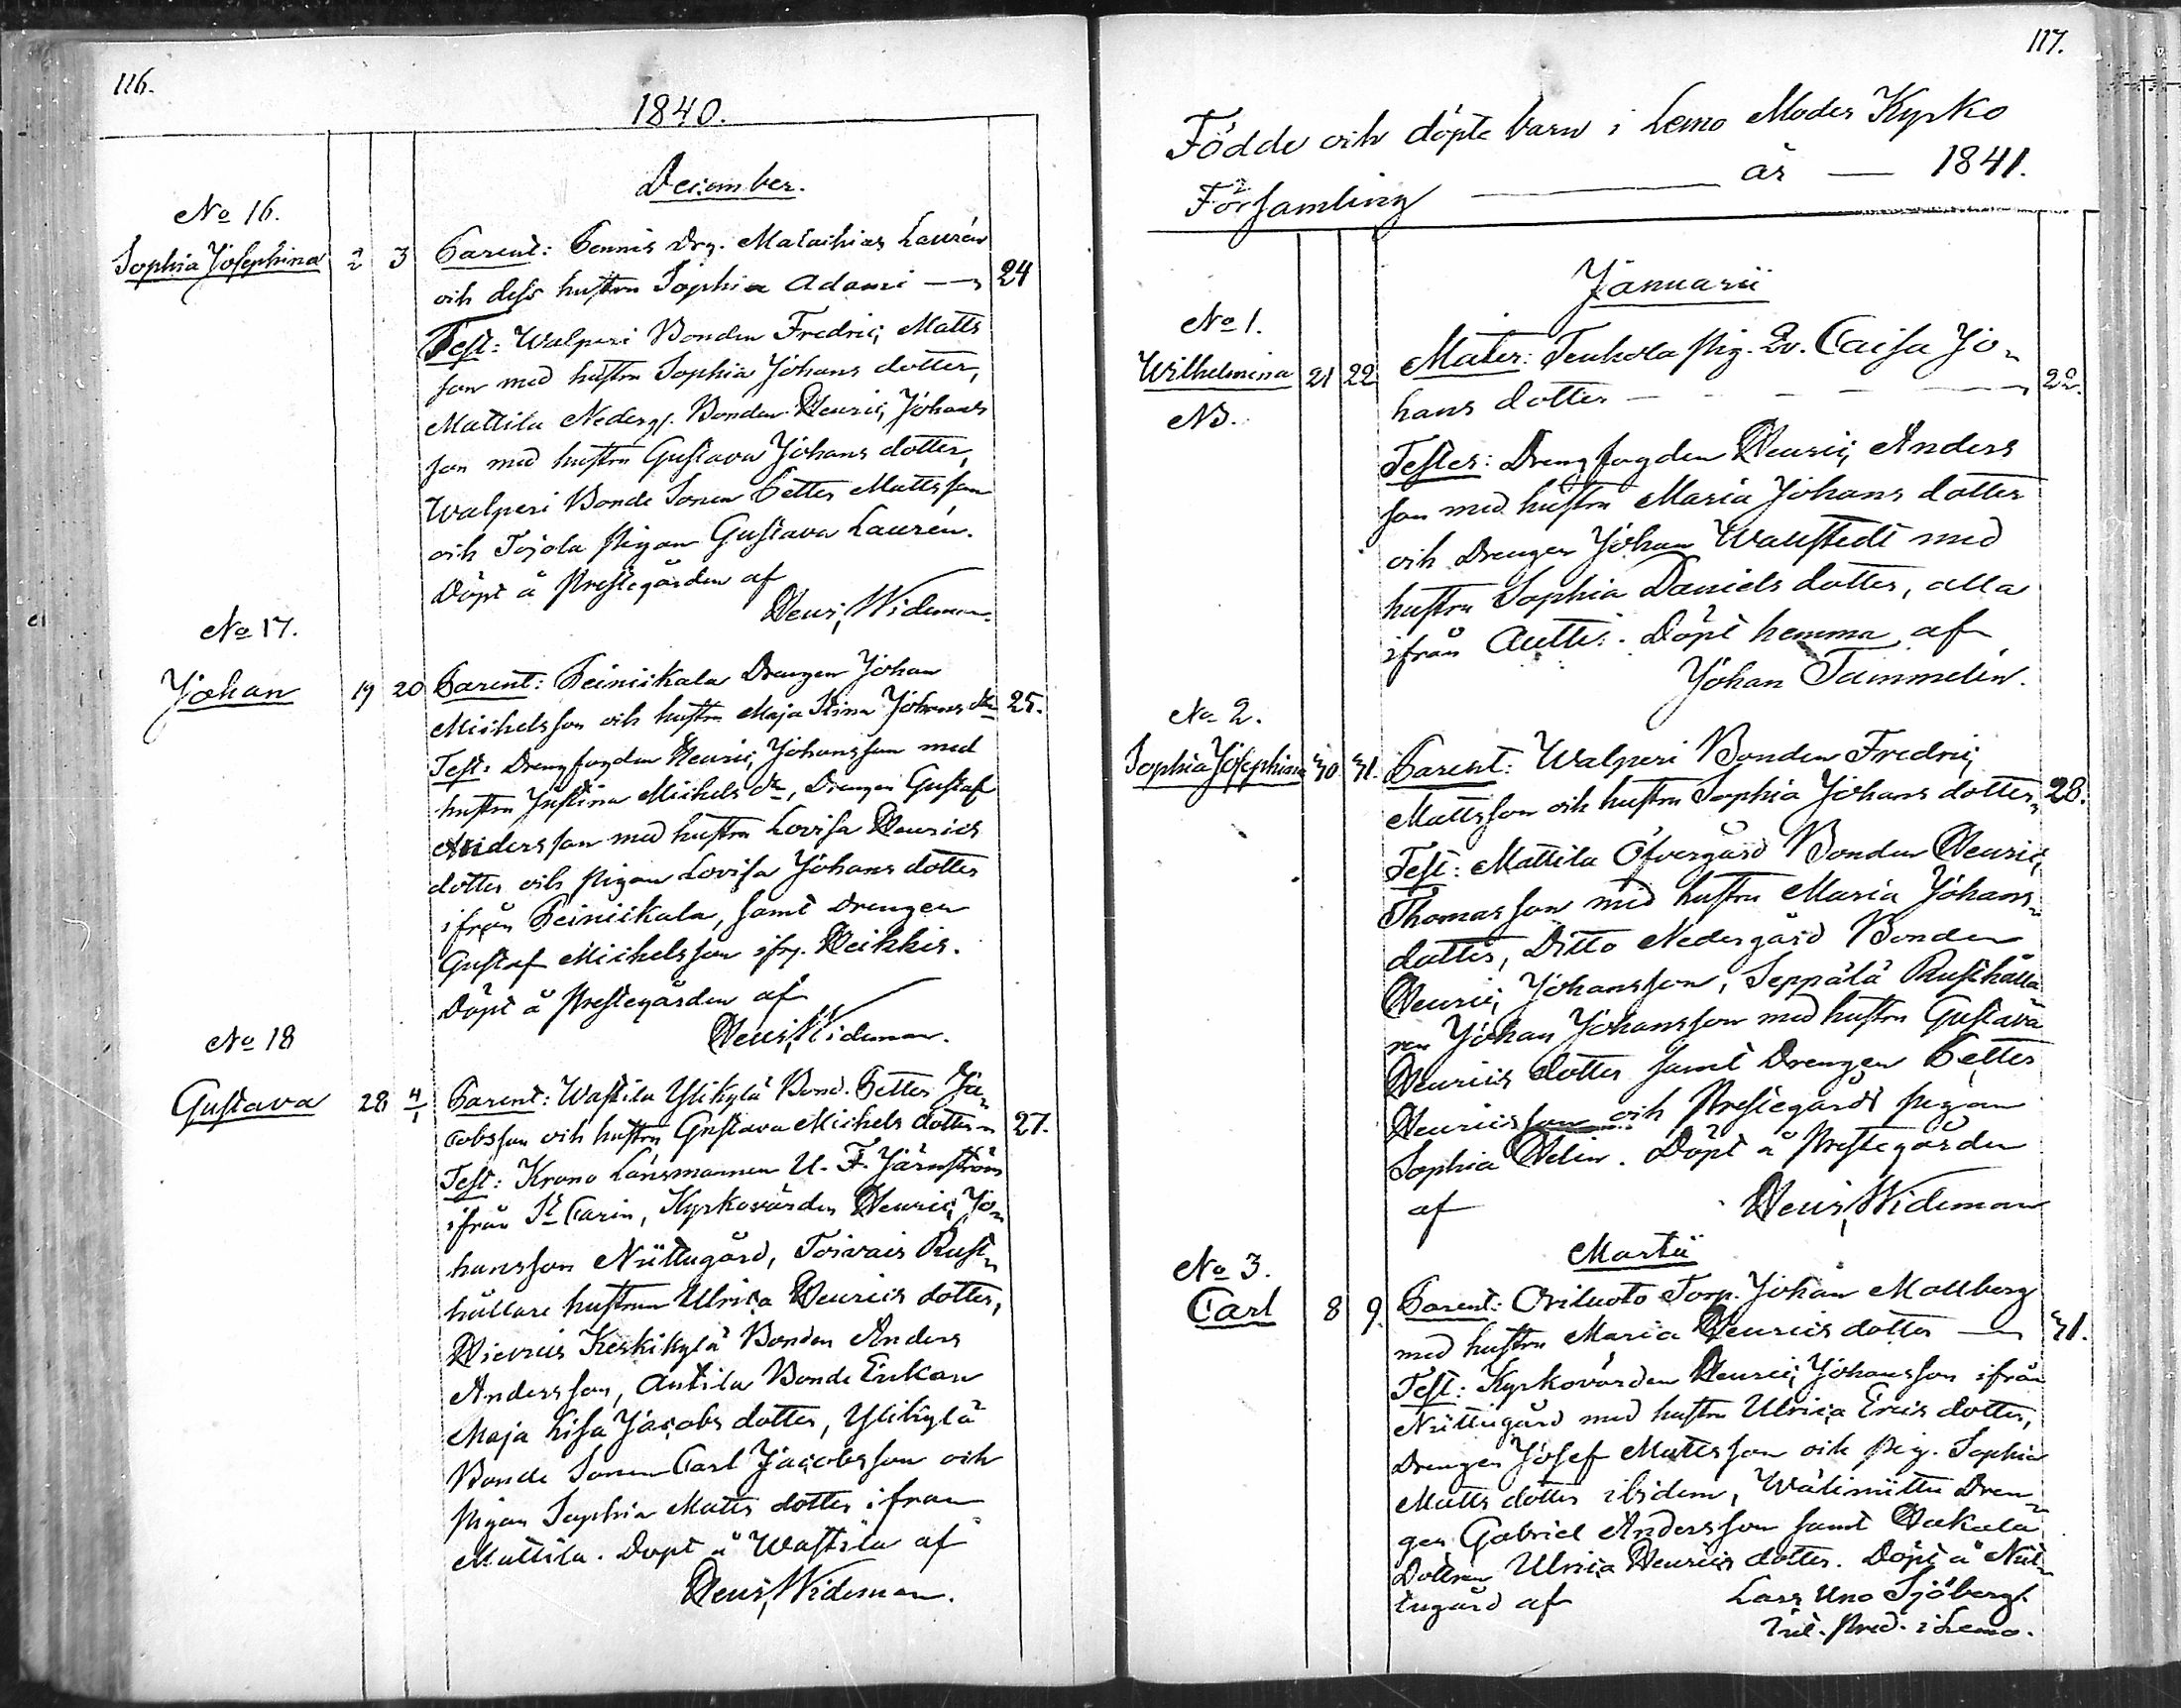 116.
1840.
December.
No 16.
Sophia Josephina 2 3 Parent: Pennis Drg. Malachias Laurén
och dess hustru Sophia Adami — 24
Test: Walperi Bonden Fredric Matts
son med hustru Sophia Johans dotter,
Mattila Nederg. Bonden Henric Johans
son med hustru Gustava Johans dotter,
Walperi Bonde Sonen Petter Mattsson
och Tojola pigan Gustava Laurén.
Döpt å Prestegården af
Henr. Wideman.
No 17.
Johan 19 20 Parent: Peinikala Drengen Johan
Michelsson och hustru Maja Stina Johans dr 25.
Test: Drengfogden Henric Johansson med
hustru Justina Michels dr, Drengen Gustaf
Andersson med hustru Lovisa Henrics
dotter och pigan Lovisa Johans dotter
ifrån Peinikala, samt Drengen
Gustaf Michelsson ifr. Heikkis.
Döpt å Prestegården af
Henr. Wideman.
No 18
Gustava 28 4/1 Parent: Wastila Ylikylä Bond. Petter Ja-
cobsson och hustru Gustava Michels dotter 27.
Test: Krono Länsmannen U. F. Järnström
ifrån St Carin, Kyrkovärden Henric Jo-
hansson Niittugård, Toivais Rust-
hållare hustrun Ulrica Henrics dotter,
Hievris Keskikylä Bonden Anders
Andersson, Antila Bonde Enkan
Maja Lisa Jacobs dotter, Ylikylä
Bonde Sonen Carl Jacobsson och
pigan Sophia Matts dotter ifran
Mattila. Döpt å Wastila af
Henr. Wideman.
117.
Födde och döpte barn i Lemo Moder Kyrko
Församling — år — 1841.
Januarii
No 1.
Wilhelmina 21 22 Mater: Tenhola Pig. Qv. Caisa Jo-
hans dotter — 22.
NB.
Testes: Drengfogden Henric Anders
son med hustru Maria Johans dotter
och Drengen Johan Wallstedt med
hustru Sophia Daniels dotter, alla
ifrån Autti. Döpt hemma af
Johan Tammelin.
No 2.
Sophia Josephina 30 31. Parent: Walperi Bonden Fredric
Mattsson och hustru Sophia Johans dotter 28.
Test: Mattila Öfvergård Bonden Henric
Thomasson med hustru Maria Johans
dotter, Ditto Nedergård Bonden
Henric Johansson, Seppälä Rusthålla
ren Johan Johansson med hustru Gustava
Henrics dotter samt Drengen Petter
Henricsson och Prestegårds pigan
Sophia Helin. Döpt å Prestegården
af Henr. Wideman
Martii
No 3.
Carl 8 9. Parent: Oriluoto Torp. Johan Mallberg
med hustru Maria Henrics dotter — 31.
Test: Kyrkovärden Henric Johansson ifrån
Niittugård med hustru Ulrica Erics dotter,
Drengen Josef Mattsson och pig. Sophia
Matts dotter ibidem, Wälimiittu Dren-
gen Gabriel Andersson samt Hakala
Dottren Ulrica Henrics dotter. Döpt å Niit-
tugård af Lars Uno Sjöberg.
Pred. i Lemo.